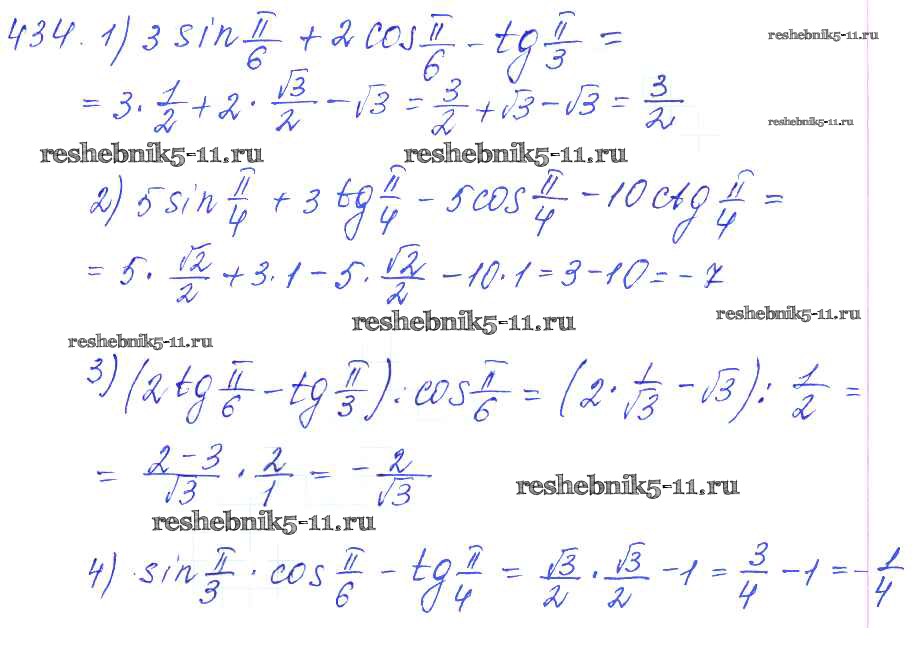 434. 1) 3 sin π/6 + 2 cos π/6 - tg π/3 =
reshebnik5-11.ru
= 3 · 1/2 + 2 · √3/2 - √3 = 3/2 + √3 - √3 = 3/2
reshebnik5-11.ru
reshebnik5-11.ru reshebnik5-11.ru
2) 5 sin π/4 + 3 tg π/4 - 5 cos π/4 - 10 ctg π/4 =
= 5 · √2/2 + 3 · 1 - 5 · √2/2 - 10 · 1 = 3 - 10 = -7
reshebnik5-11.ru reshebnik5-11.ru
reshebnik5-11.ru
3) (2 tg π/6 - tg π/3) : cos π/6 = (2 · 1/√3 - √3) : 1/2 =
= (2-3)/√3 · 2/1 = - 2/√3
reshebnik5-11.ru
reshebnik5-11.ru
4) sin π/3 · cos π/6 - tg π/4 = √3/2 · √3/2 - 1 = 3/4 - 1 = - 1/4